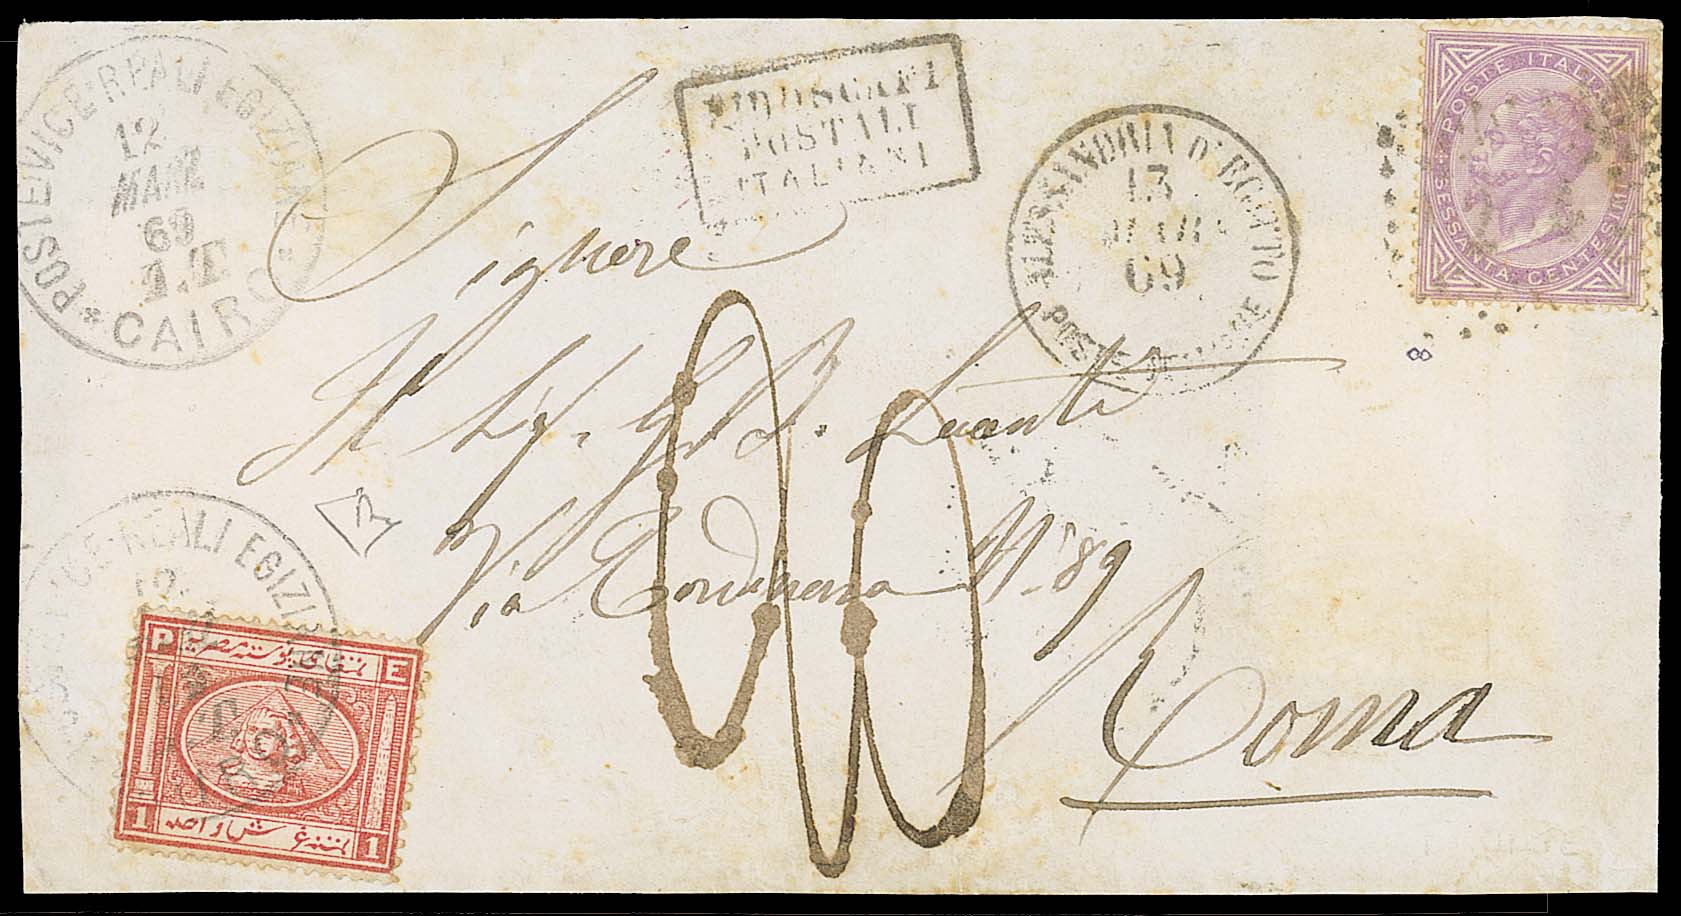 POSTE VICE-REALI EGIZIANE
12
MARZ
69
1.T
* CAIRO *
PIROSCAFI
POSTALI
ITALIANI
ALESSANDRIA D'EGITTO
13
MAR
69
POSTE ITALIANE
POSTE ITALIANE
SESSANTA CENTESIMI
8
Signore
Il Sig. G. B.
Via N. 89
Roma
VICE-REALI EGIZIANE
12
P E
بمنفای پوسته مصریه
1 1